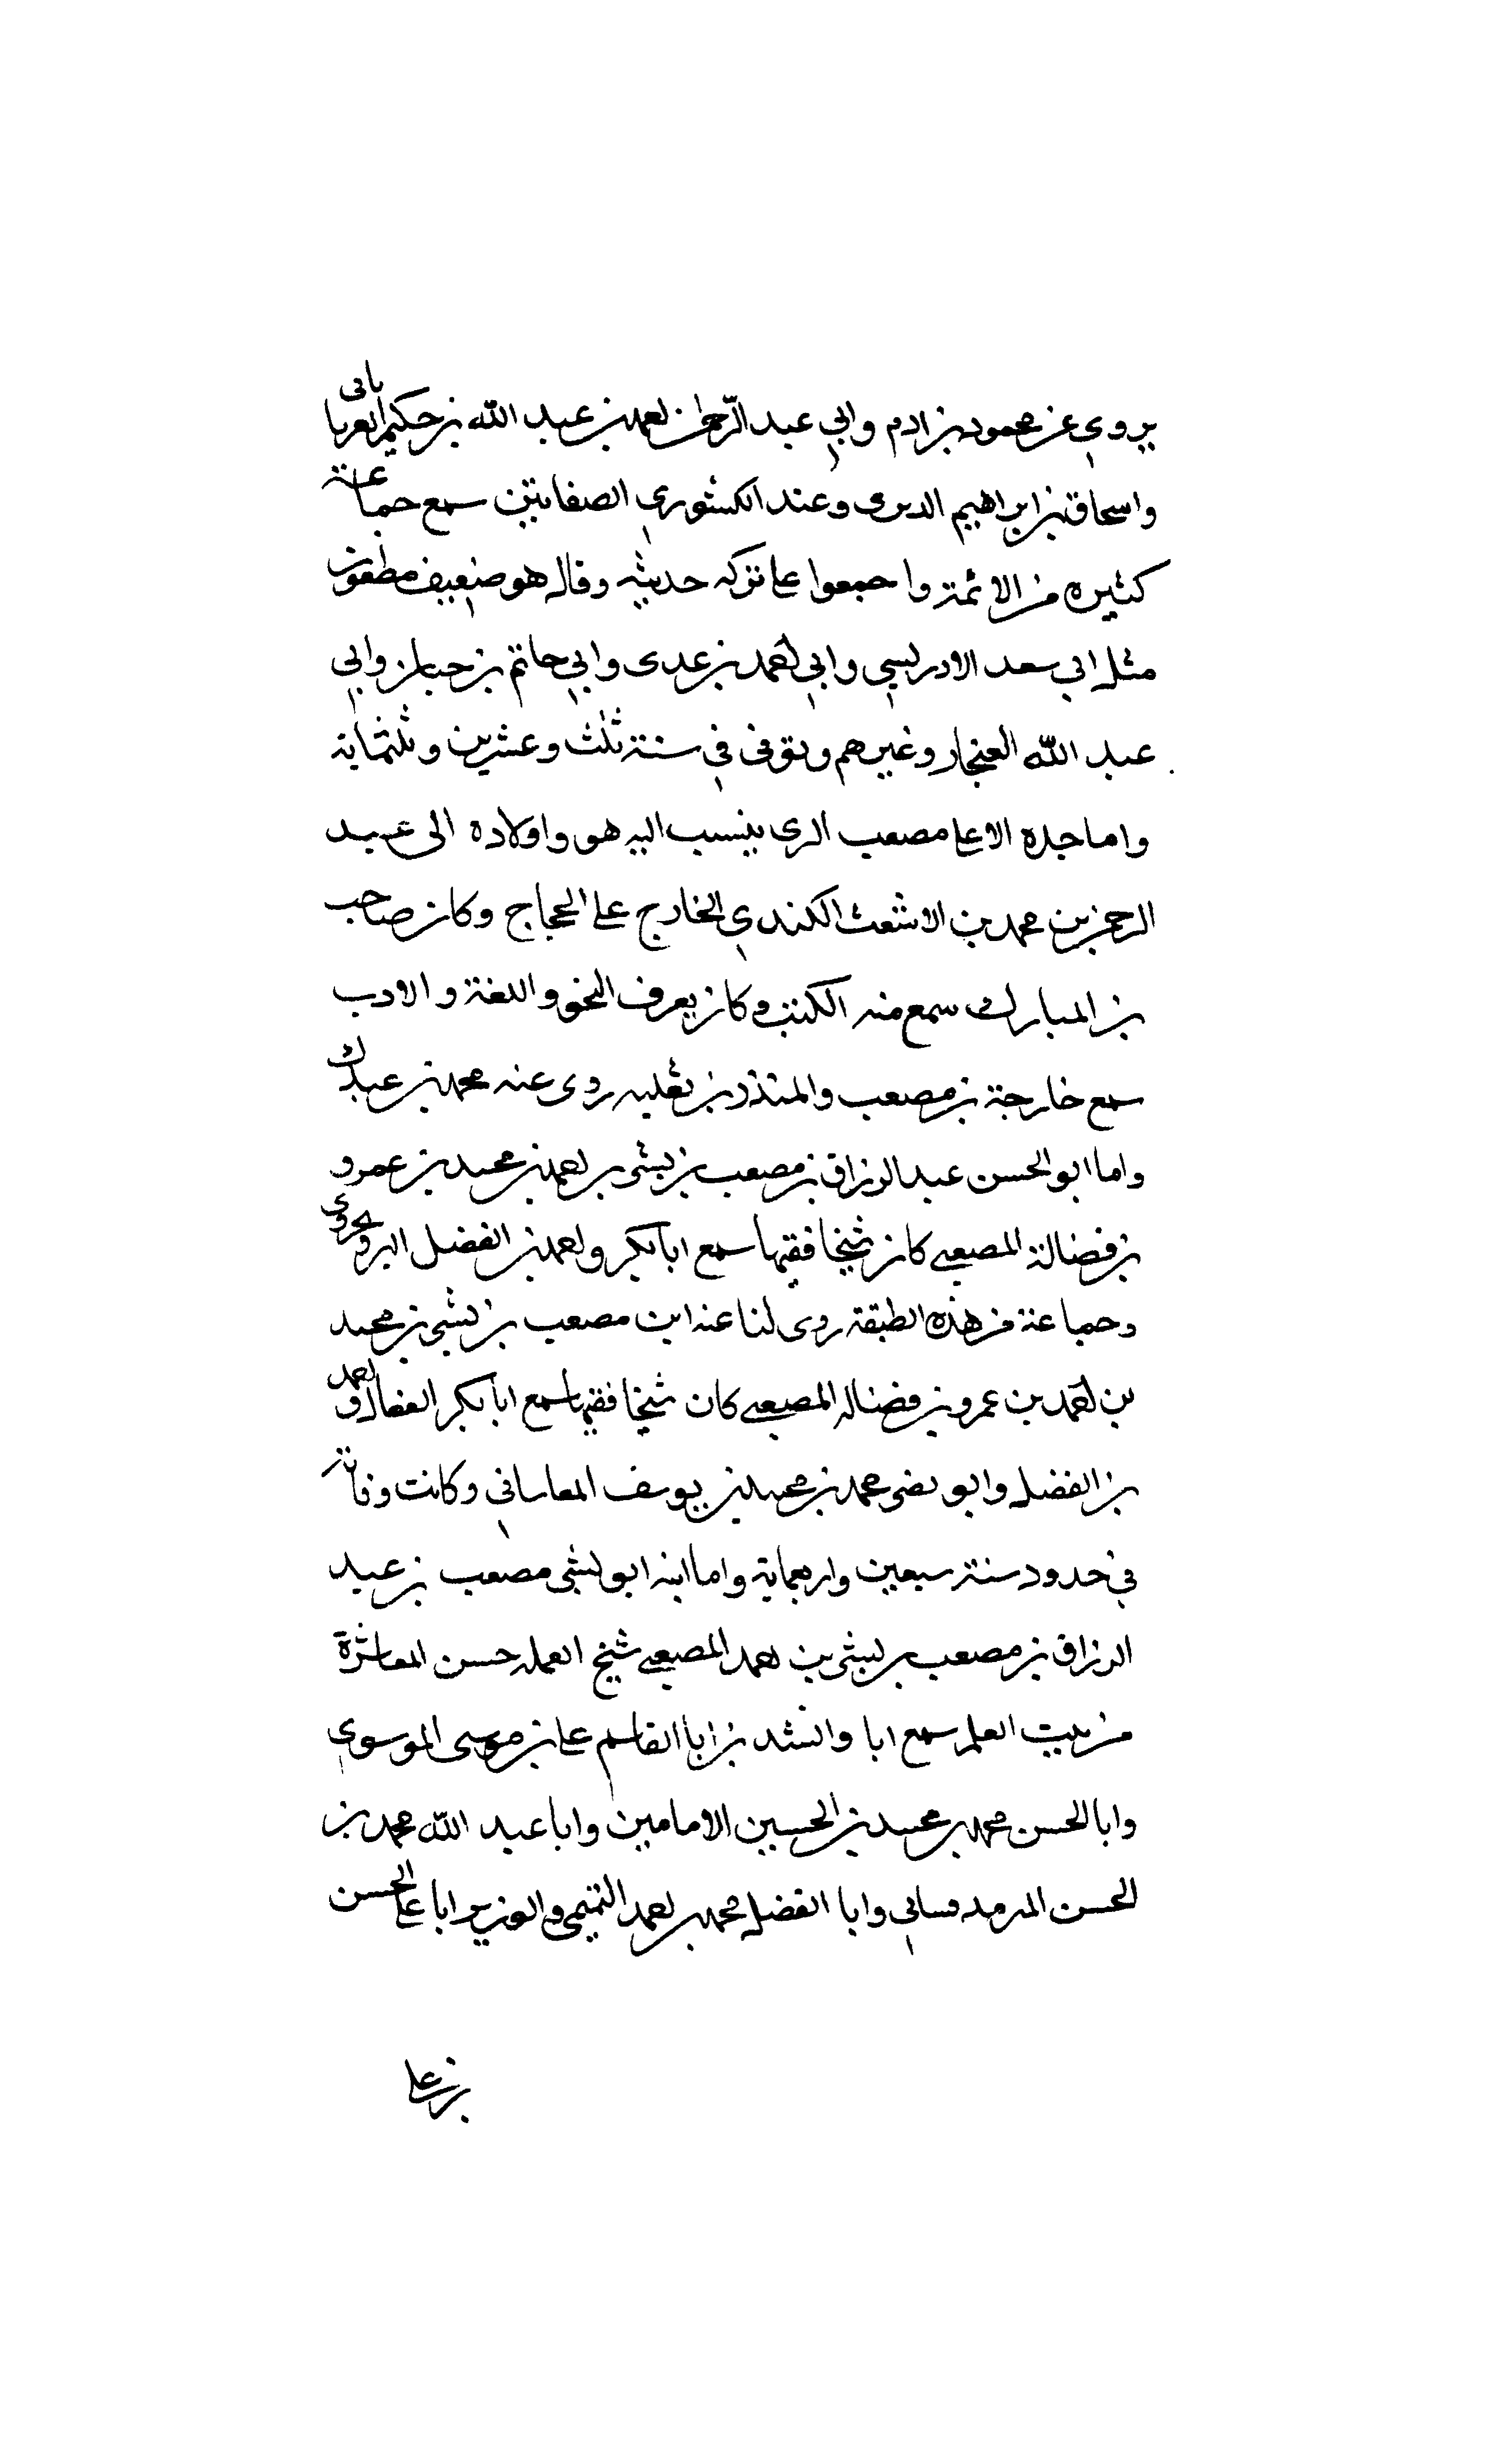 يروي عن محمود بن ادم وابي عبد الرحمن احمد بن عبد الله بن حكيم الفرياباني
واسحاق بن ابراهيم الدبرى وعند الكشوري الصفانيين سمع جماعة
كثيره من الائمة واجمعوا على تركه حديثه وقال هو ضعيف مطعون
مثل ابي سعد الادريسي وابي احمد بن عدى وابي حاتم بن حبان وابي
عبد الله الغنجار وغيرهم وتوفى في سنة ثلث وعشرين وثلثماية
واما جده الاعلى مصعب الدى ينسب اليه هو واولاده الى عبد
الرحمن بن محمد بن الاشعث الكندي الخارج على الحجاج وكان صاحب
بن المبارك سمع منه الكتب وكان يعرف النحو واللغة والادب
سمع خارجة بن مصعب والمنذر بن ثعلبه روى عنه محمد بن عبدك
واما ابو الحسن عبد الرزاق بن مصعب بن بشر بن احمد بن محمد بن عمرو
بن فضالة المصعبي كان شيخا فقيها سمع ابا بكر واحمد بن الفضل البروجردى
وجماعة من هذه الطبقة روى لنا عنه ابن مصعب بن بشر بن محمد
بن احمد بن عمرو بن فضاله المصعبي كان شيخا فقيها سمع ابا بكر القفال واحمد
بن الفضل وابو محمد بن محمد بن يوسف وكانت وفاته
في حدود سنة سبعين واربعماية واما ابنه ابو بشر مصعب بن عبد
الرزاق بن مصعب بن بشر بن احمد المصعبي شيخ العمله حسن المعاشرة
من بيت العلم سمع ابا بن ابا القاسم على بن موسى الموسوي
وابا الحسن محمد بن محمد بن الحسين الامامين وابا عبد الله محمد بن
الحسن وابا الفضل محمد بن احمد التميمي والوزير ابا على الحسن
بن على